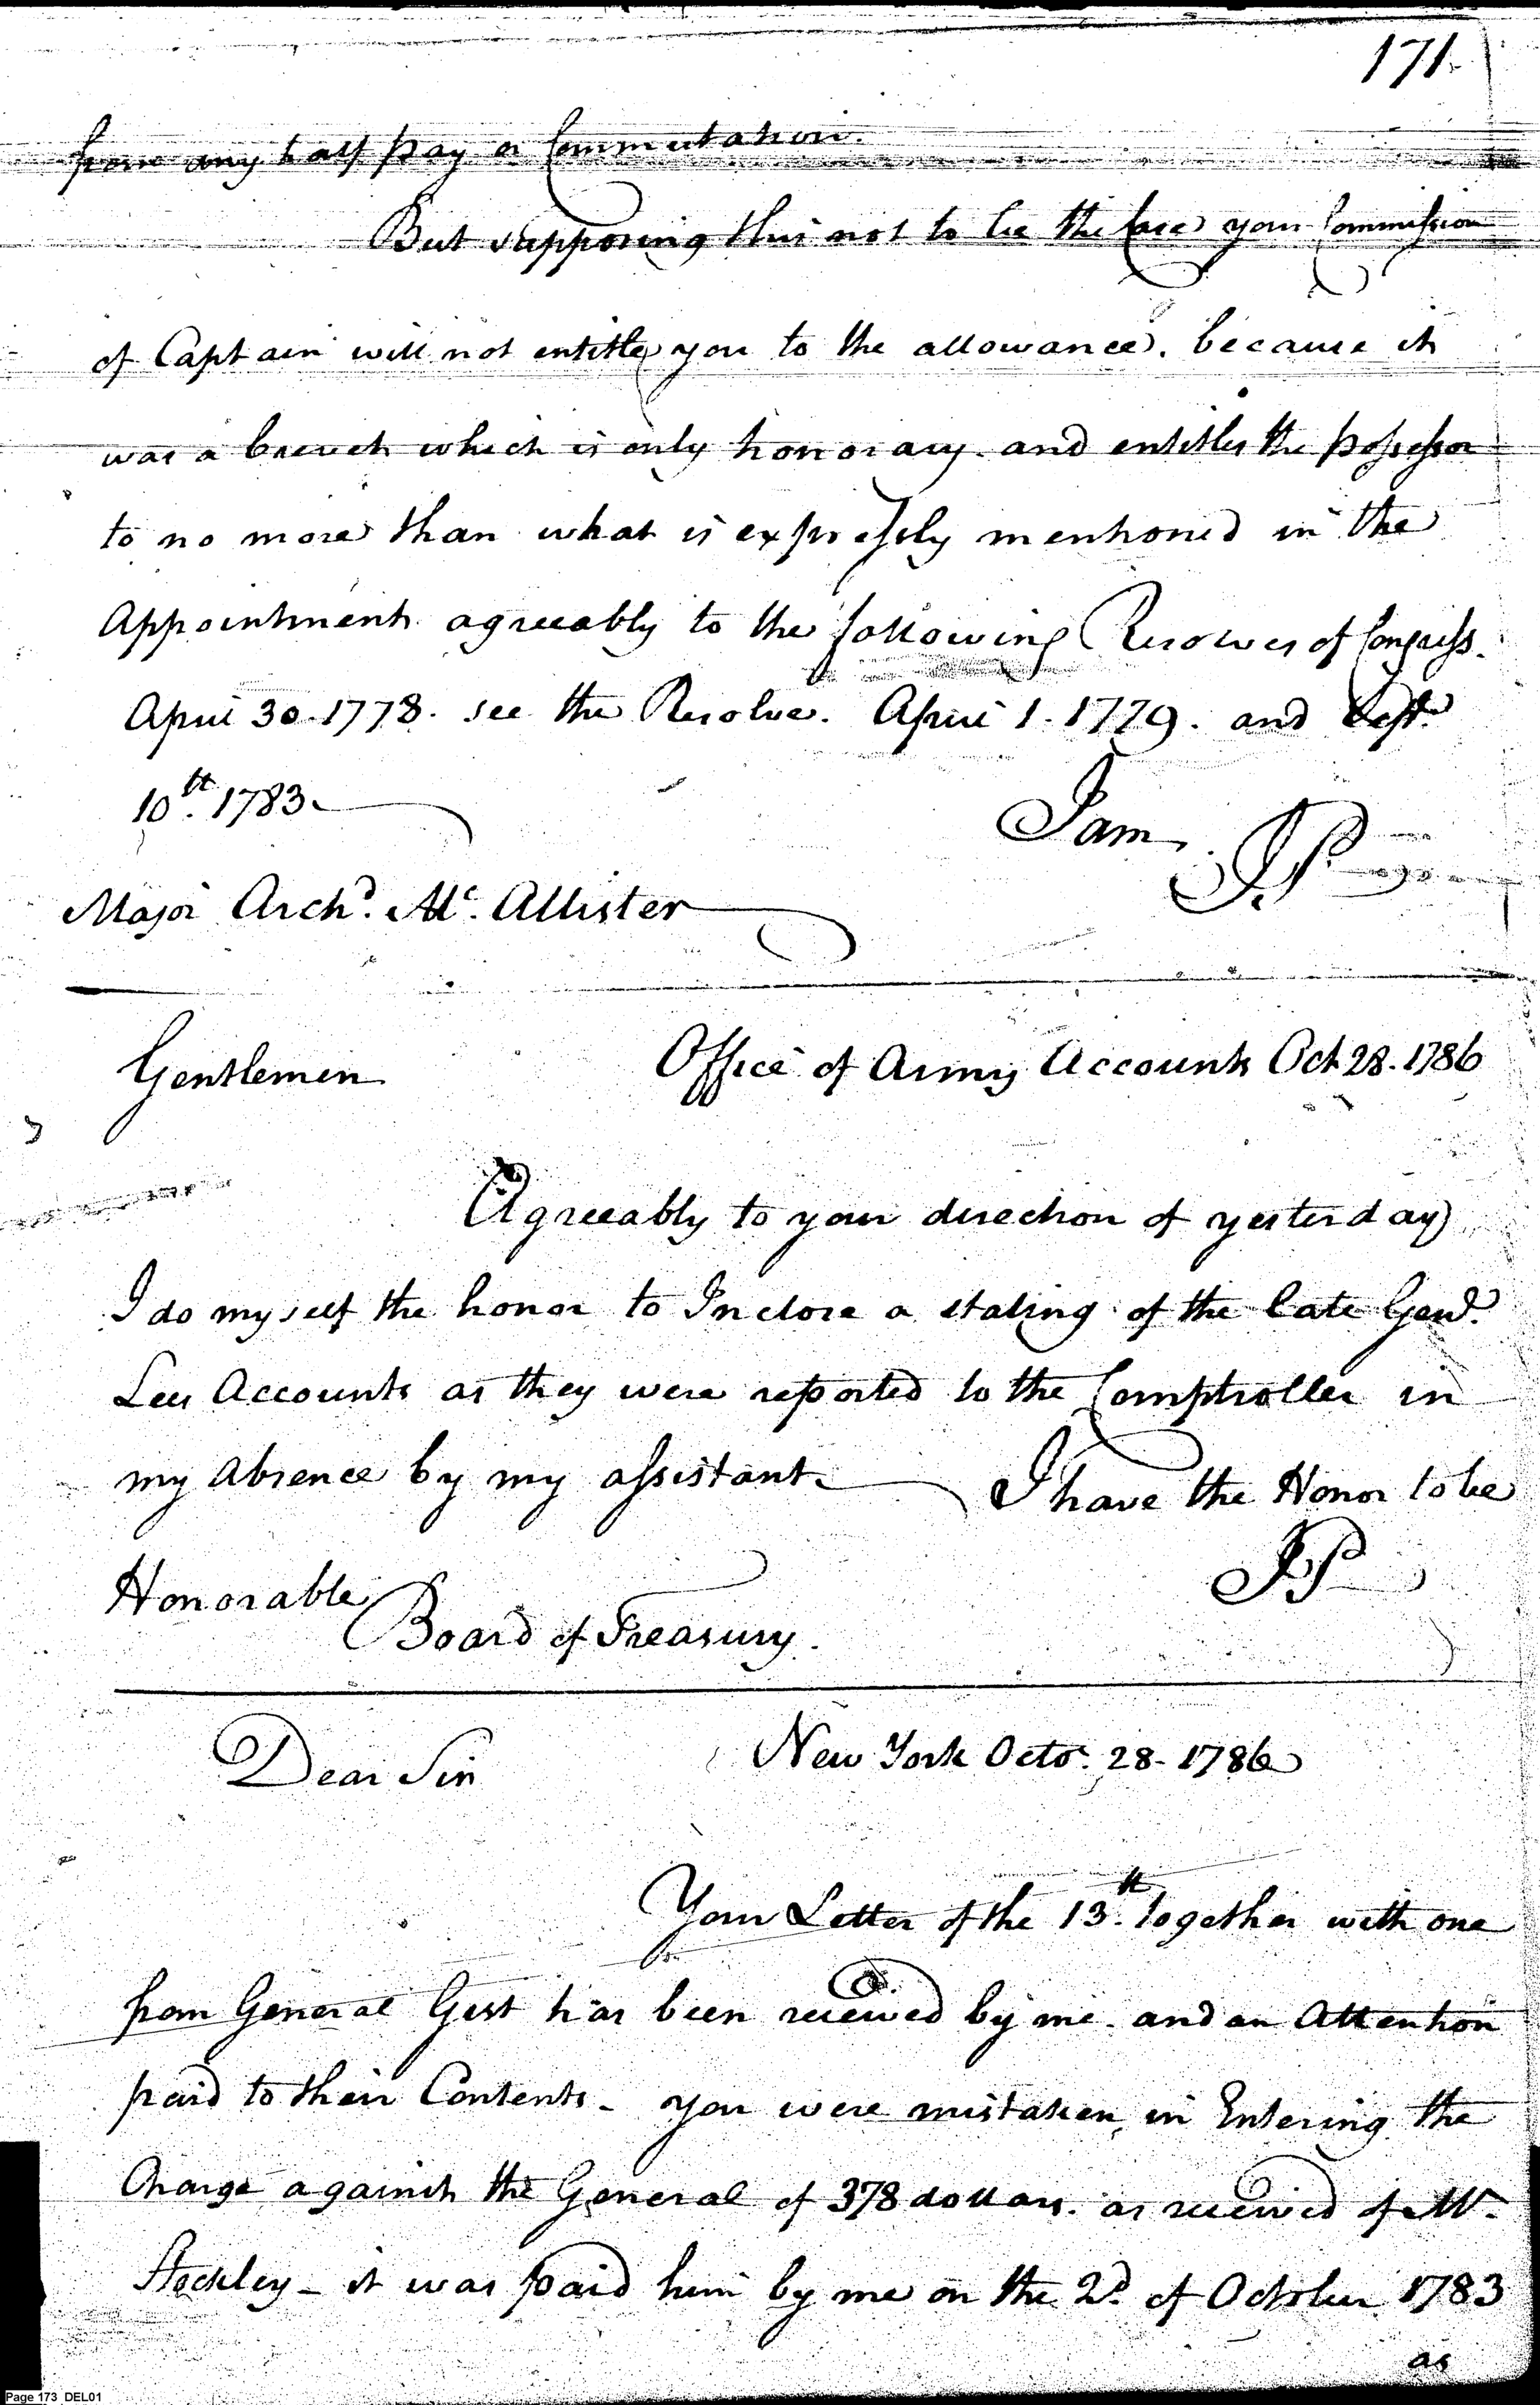 171.
from any half pay or Commutation.
But supposing this not to be the Case your Commission
of Captain will not entitle you to the allowance. because it
was a brevet which is only honorary. and entitles the possessor
to no more than what is expressly mentioned in the
Appointment agreeably to the following Resolves of Congress.
April 30. 1778. see the Resolve. April 1. 1779. and Sept.
10th. 1783.
I am
JP
Major Archd. Mc. Allister
Gentlemen
Office of Army Accounts Oct 28. 1786
Agreeably to your direction of yesterday
I do myself the honor to Inclose a stating of the late Genl.
Lees Accounts as they were reported to the Comptroller in
my absence by my assistant.
I have the Honor to be
JP
Honorable
Board of Treasury.
Dear Sir
New York Octo. 28. 1786
Your Letter of the 13th. together with one
from General Gist has been received by me. and an Attention
paid to their Contents - you were mistaken, in Entering the
Charge against the General of 378 dollars. as received of Mr.
Steckley - it was paid him by me on the 2d. of October 1783
as
Page 173 DEL01